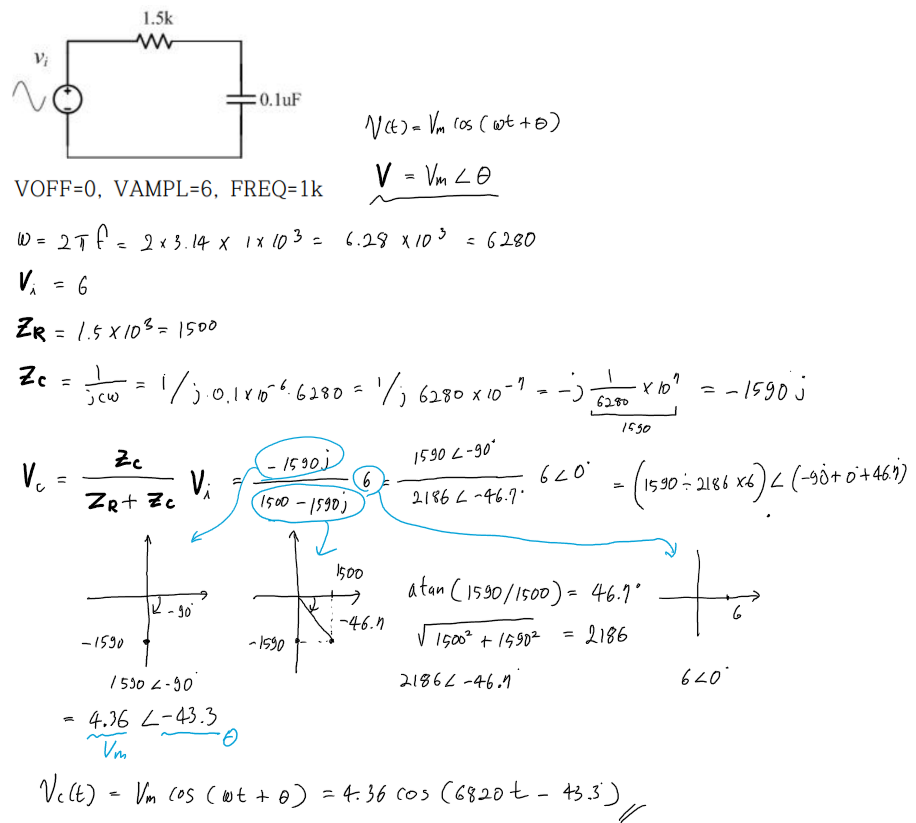 1.5k
vᵢ
0.1uF
V(t) = Vm cos (ωt + θ)
V = Vm ∠ θ
VOFF=0, VAMPL=6, FREQ=1k
ω = 2πf = 2 × 3.14 × 1 × 10³ = 6.28 × 10³ = 6280
Vᵢ = 6
Z_R = 1.5 × 10³ = 1500
Zc = 1/jCω = 1/j·0.1×10⁻⁶·6280 = 1/j 6280 × 10⁻⁷ = -j 1/6280 × 10⁷ = -1590j
1590
Vc = Zc/(Z_R + Zc) Vᵢ = -1590j/(1500 - 1590j) 6 = 1590∠-90°/2186∠-46.7° 6∠0° = (1590 ÷ 2186 × 6) ∠ (-90° + 0° + 46.7°)
-90°
-1590
1590 ∠-90°
1500
-46.7
-1590
atan (1590/1500) = 46.7°
√1500² + 1590² = 2186
2186∠-46.7°
6
6∠0°
= 4.36 ∠-43.3
Vm θ
Vc(t) = Vm cos (ωt + θ) = 4.36 cos (6820t - 43.3°)